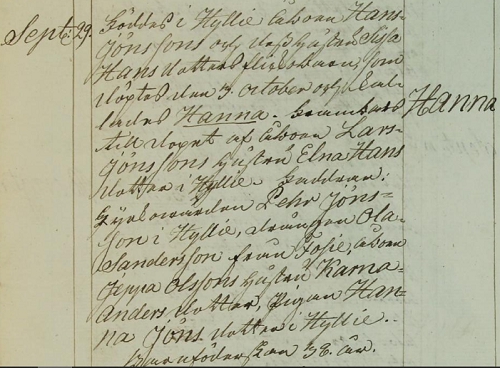 Septe: 29.
Föddes i Hyllie Åboen Hans
Jönssons och dess hustru Sissa
Hans dotters flickebarn, som
döptes den 3. October och kal-
lades Hanna. Frambars
Hanna
till dopet af Åboen Lars
Jönssons hustru Elna Hans
dotter i Hyllie. Faddrar:
Kyrkovärden Pehr Jöns-
son i Hyllie, drängen Ola
Sandersson från Fosie, Åboen
Jeppa Olssons hustru Karna
Anders dotter, Pigan Han-
na Jöns dotter i Hyllie.
Barnföderskan 38. år.